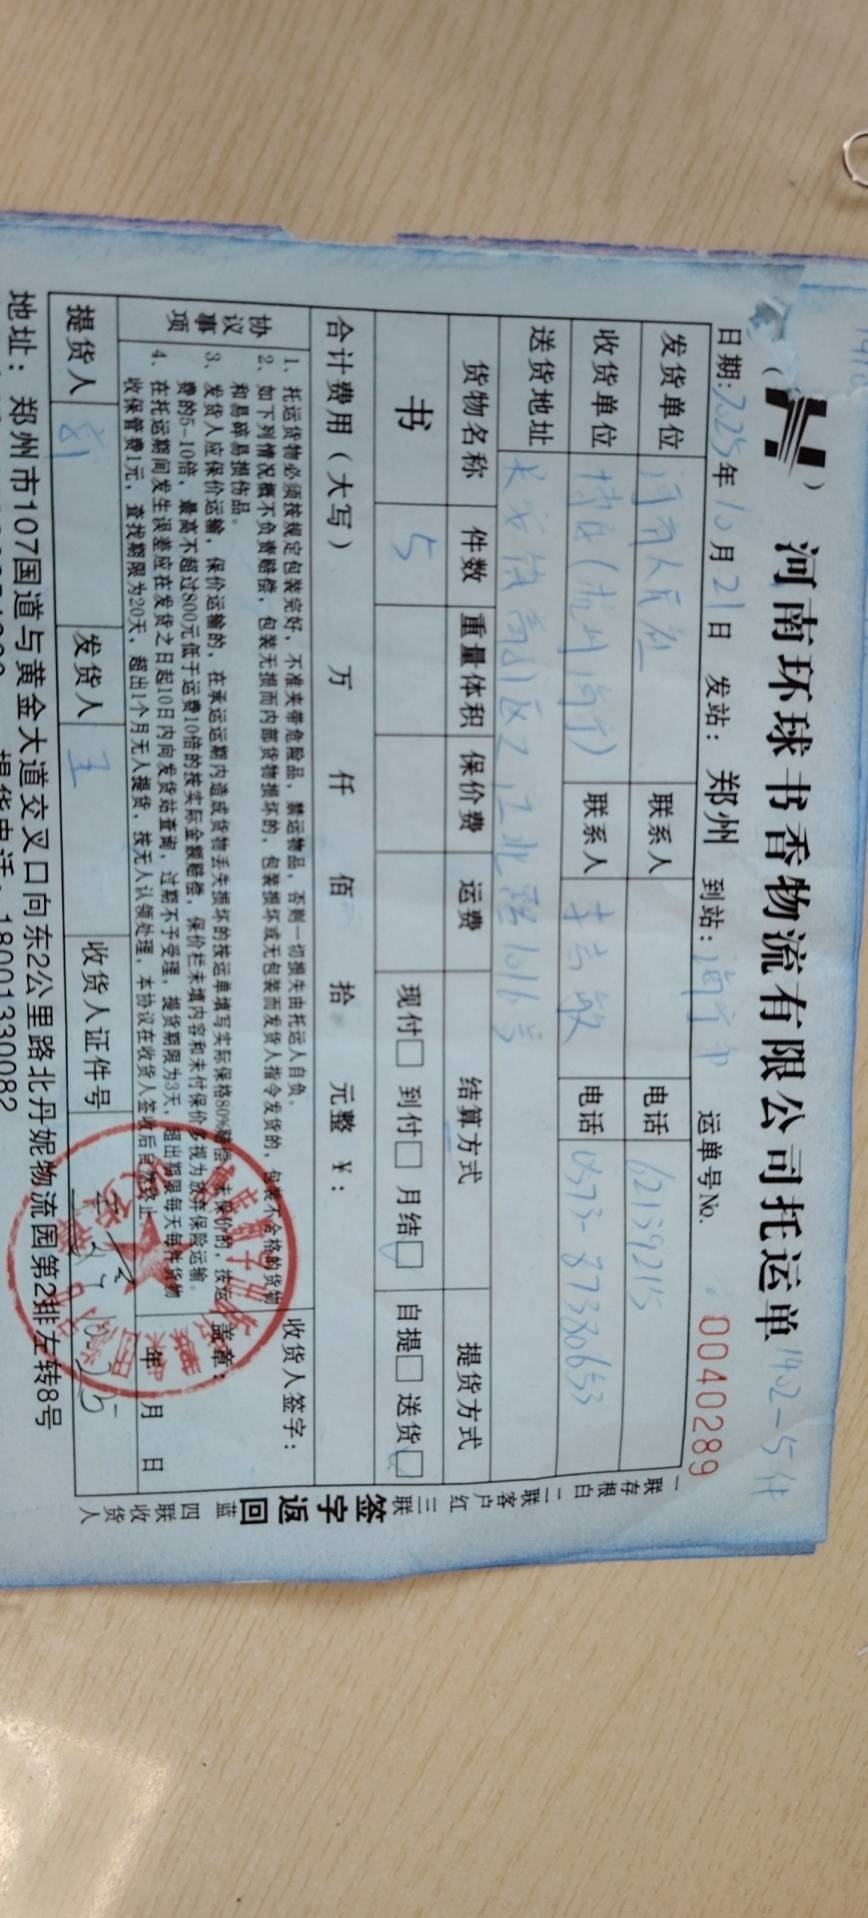 河南环球书香物流有限公司托运单 1402-5件
日期:2025年10月21日 发站：郑州 到站：海宁 运单号No. 0040289
发货单位 河南人民社 联系人 电话 62139215
收货单位 博库(杭州海宁) 联系人 电话 0573-87330653
送货地址 1016号
货物名称 件数 重量体积 保价费 运费 结算方式 提货方式
书 5 现付□ 到付□ 月结□ 自提□ 送货□
合计费用(大写) 万 仟 佰 拾 元整 ￥:
协议事项
1、托运货物必须按规定包装完好，不准夹带危险品，禁运物品，否则一切损失由托运人自负。
2、如下列情况概不负责赔偿，包装无损而内部货物损坏的，包装损坏或无包装而发货人指令发货的，包装不合格的货物
和易碎易损伤品。
3、发货人应保价运输，保价运输的，在承运运期内造成货物丢失损坏的按运单填写实际保格80%赔偿，未保价的，按运
费的5-10倍，最高不超过800元低于运费10倍的按实际金额赔偿，保价栏未填内容和未付保价多视为放弃保险运输。
4、在托运期间发生误差应在发货之日起10日内向发货站查询，过期不予受理，提货期限为3天，超出期限每天每件货物
收保管费1元，查找期限为20天，超出1个月无人提货，按无人认领处理，本协议在收货人签收后自然终止
收货人签字：
盖章：
年 月 日
提货人 刘 发货人 王 收货人证件号
地址：郑州市107国道与黄金大道交叉口向东2公里路北丹妮物流园第2排左转8号
提货电话：18001330082
一联存根白 二联客户红 三联签字返回蓝 四联收货人